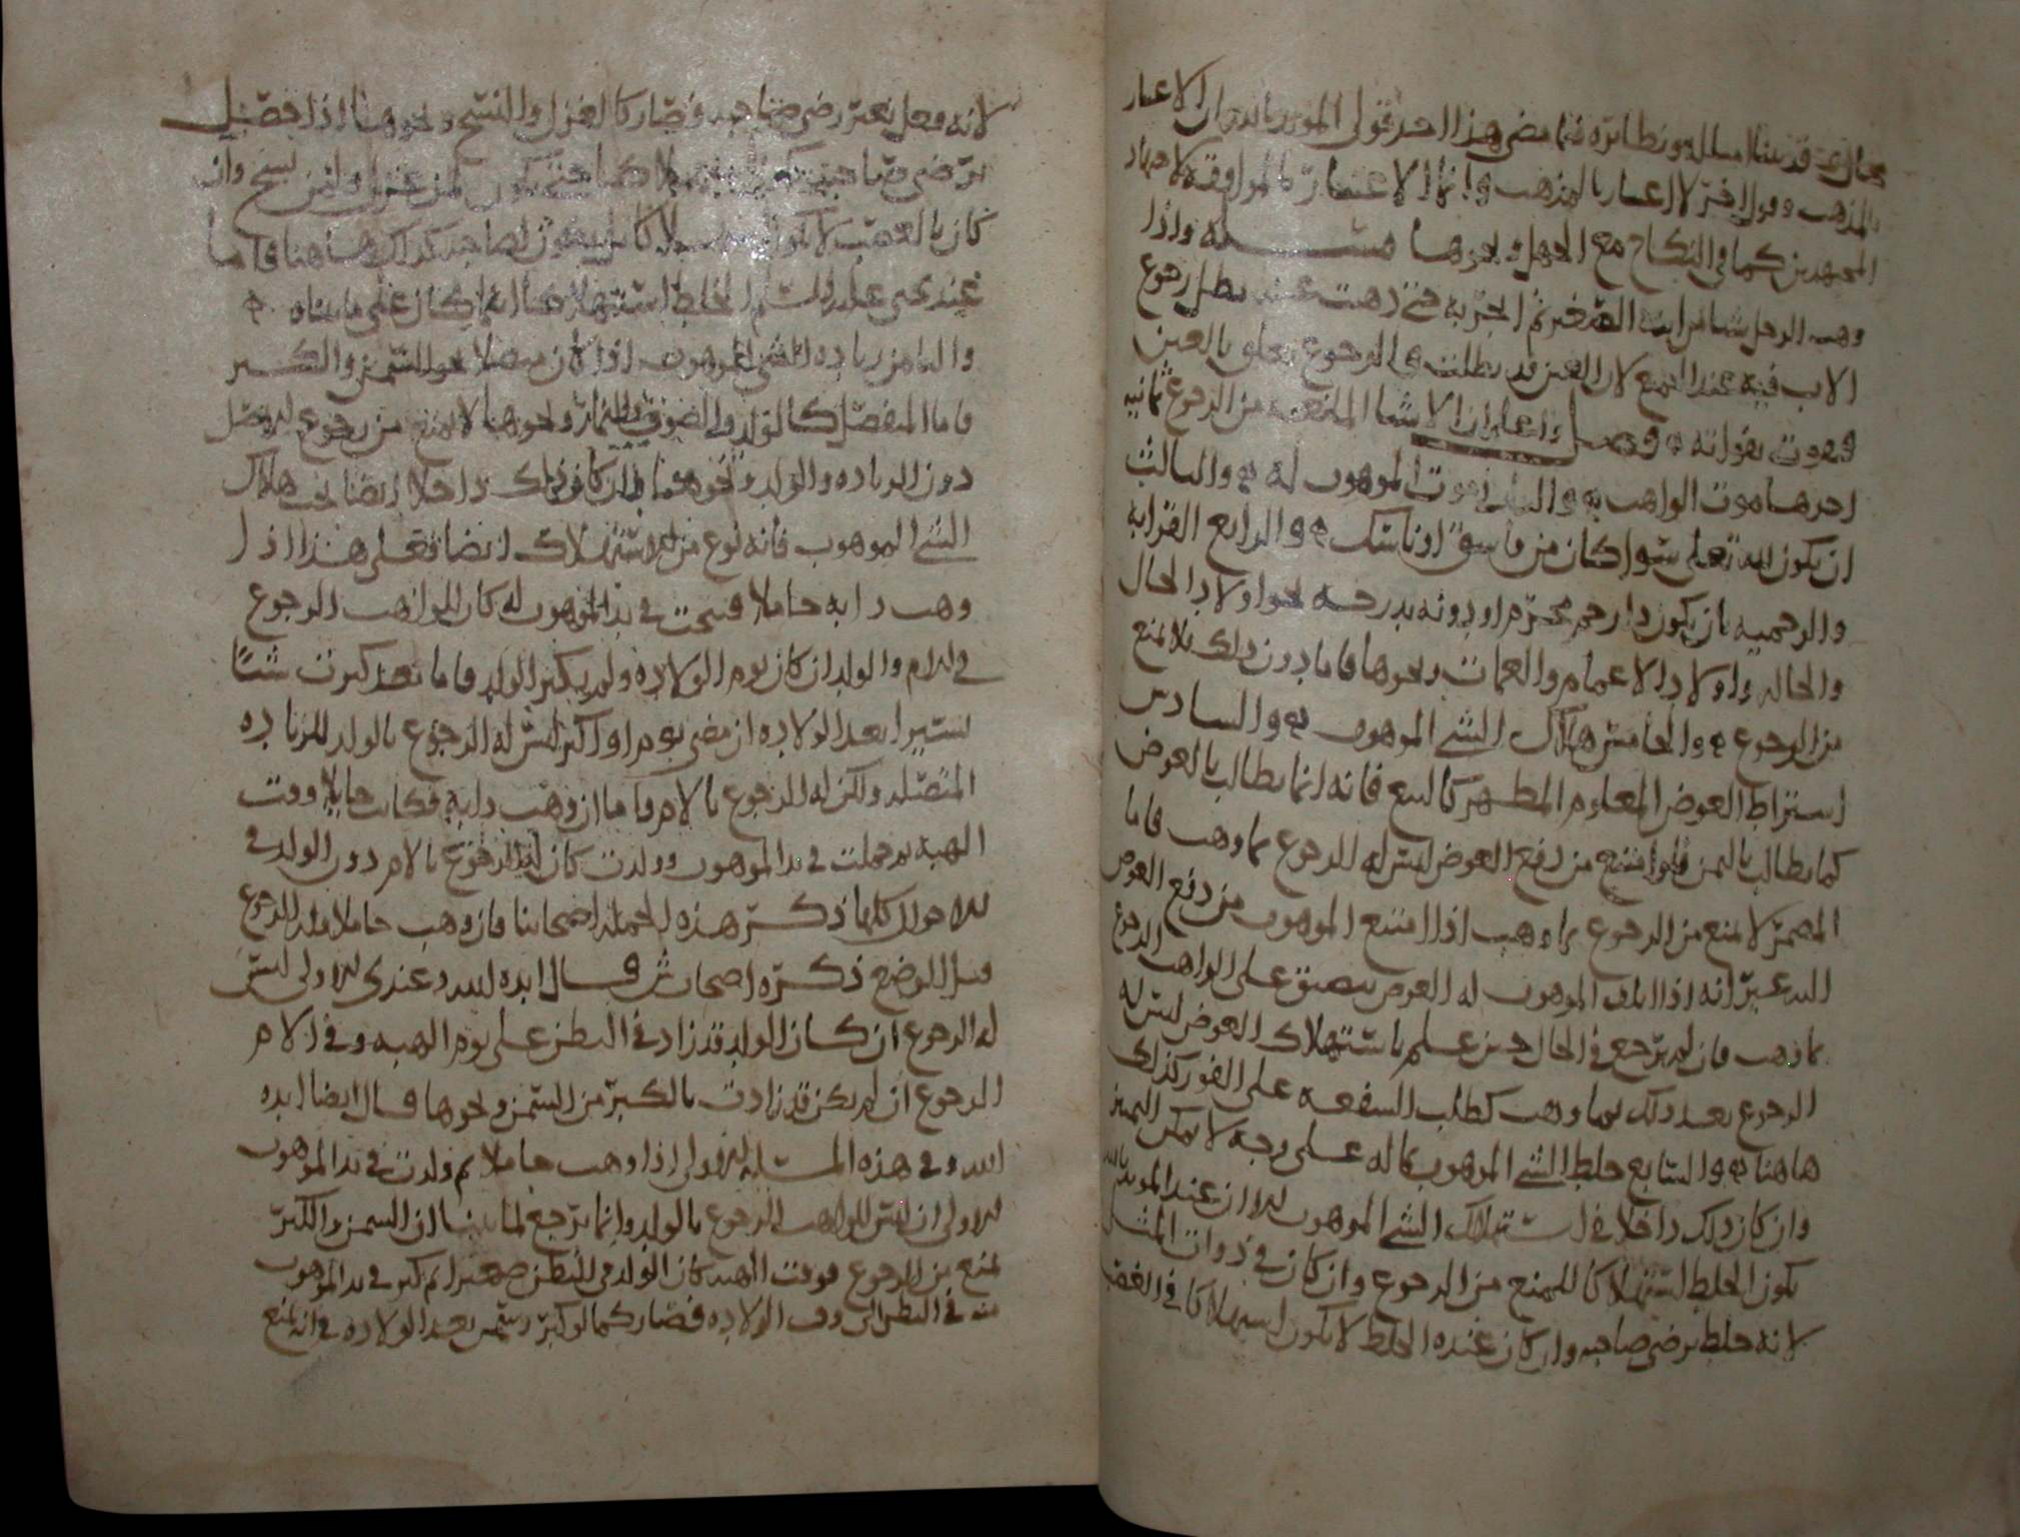 قد بينا امثاله ونظائره فيما مضى هذا احد قولي المؤيد بالله ان الاعتبار
بالمذهب وقول اخر لا اعتبار بالمذهب وانما الاعتبار بالموافقة لاجتهاد
المجتهدين كما في النكاح مع الجهل ونحوها مسئلة واذا
وهب الرجل شيا من ابنه الصغير ثم اتجر به حتى ذهبت عينه بطل رجوع
الاب فيه عند الجميع لان العين قد بطلت والرجوع يتعلق بالعين
فيفوت بفواته فصل واعلم ان الاشيا المانعة من الرجوع ثمانية
احدها موت الواهب والثاني موت الموهوب له والثالث
ان يكون لله تعالى سوا كان من فاسق او ناسك والرابع القرابة
والرحمية بان يكون ذا رحم محرم او دونه بدرجة نحو اولاد الخال
والخالة واولاد الاعمام والعمات ونحوها فاما دون ذلك فلا يمنع
من الرجوع والخامس هلاك الشي الموهوب والسادس
اشتراط العوض المعلوم المظهر كالبيع فانه انما يطالب بالعوض
كما يطالب بالثمن فلو امتنع من دفع العوض ليس له الرجوع بما وهب فاما
المضمر لا يمنع من الرجوع بما وهب اذا امتنع الموهوب من دفع العوض
انه اذا اتلف الموهوب له العوض على الواهب الرجوع
بما وهب فان لم يرجع في الحال حين علم باستهلاك العوض ليس له
الرجوع بعد ذلك بما وهب كطلب الشفعة على الفور كذلك
هاهنا والسابع خلط الشي الموهوب بماله على وجه لا يمكن التمييز
وان كان ذلك داخلا في استهلاك الشي الموهوب الا ان عند المؤيد بالله
يكون الخلط استهلاكا للمنع من الرجوع وان كان في ذوات المثل
لانه خلط برضى صاحبه وان كان عنده الخلط لا يكون استهلاكا في الغصب
لانه فعل بغير رضى صاحبه فصار كالغزل والنسج ونحوهما اذا حصل
برضى صاحبه يكون استهلاكا حتى يكون لمن غزل ولمن نسج وان
كان بالغصب لا يكون استهلاكا بل يكون لصاحبه كذلك هاهنا فاما
عند يحيى عليه السلم الخلط استهلاك كان على ما بيناه
والثامن زيادة الشي الموهوب اذا كان متصلا نحو السمن والكبر
فاما المنفصل كالولد والصوف والثمار ونحوها لا يمنع من رجوع الاصل
دون الزيادة والولد ونحوهما وان كان ذلك داخلا ايضا تحت هلاك
الشي الموهوب فانه نوع من الاستهلاك ايضا فعلى هذا اذا
وهب دابة حاملا فنتجت في يد الموهوب له كان للواهب الرجوع
في الام والولد ان كان يوم الولادة ولم يكبر الولد فاما بعد كبرت شيئا
يسيرا بعد الولادة ان مضى يوم او اكثر ليس له الرجوع بالولد للزيادة
المتصلة ولكن له الرجوع بالام فاما ان وهب دابة فكانت حايلا وقت
الهبة ثم حملت في يد الموهوب وولدت كان له الرجوع بالام دون الولد في
الاحوال كلها ذكر هذه الجملة اصحابنا فان وهب حاملا فله الرجوع
قبل الوضع ذكره اصحاب ش قال ايده الله وعندي الاولى ليس
له الرجوع ان كان الولد قد زاد في البطن على يوم الهبة وفي الام
الرجوع ان لم يكن قد زادت بالكبر من السمن ونحوها قال ايضا ايده
الله وفي هذه المسئلة الاولى اذا وهب حاملا ثم ولدت في يد الموهوب
الاولى ان ليس للواهب الرجوع بالولد وانما يرجع لما بينا ان السمن والكبر
يمنع من الرجوع فوقت الهبة كان الولد في البطن صغيرا ثم كبر في يد الموهوب
منه في البطن الى وقت الولادة فصار كما لو كبر وسمن بعد الولادة في انه يمنع